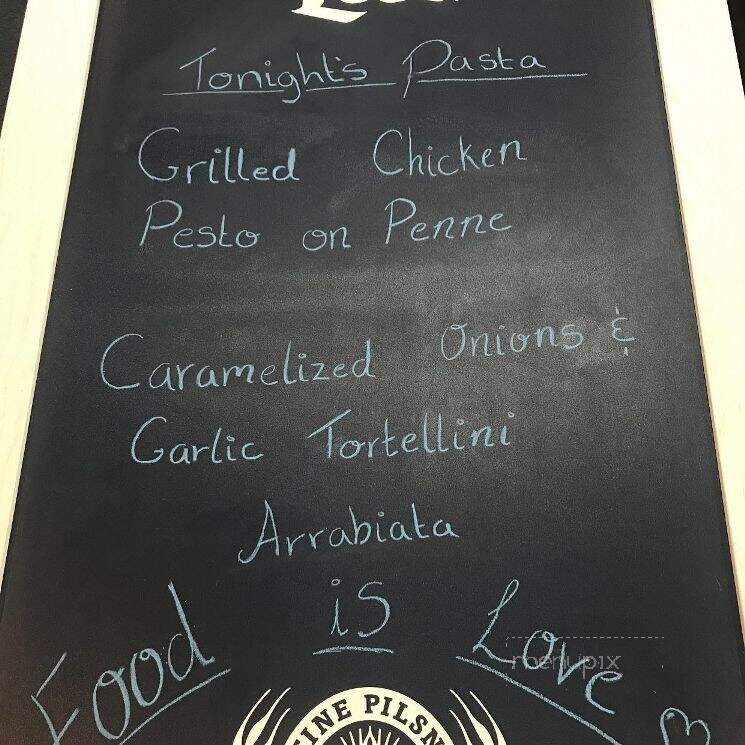 Tonight's Pasta
Grilled Chicken
Pesto on Penne
Caramelized Onions &
Garlic Tortellini
Arrabiata
Food is Love
menupix
FINE PILSN